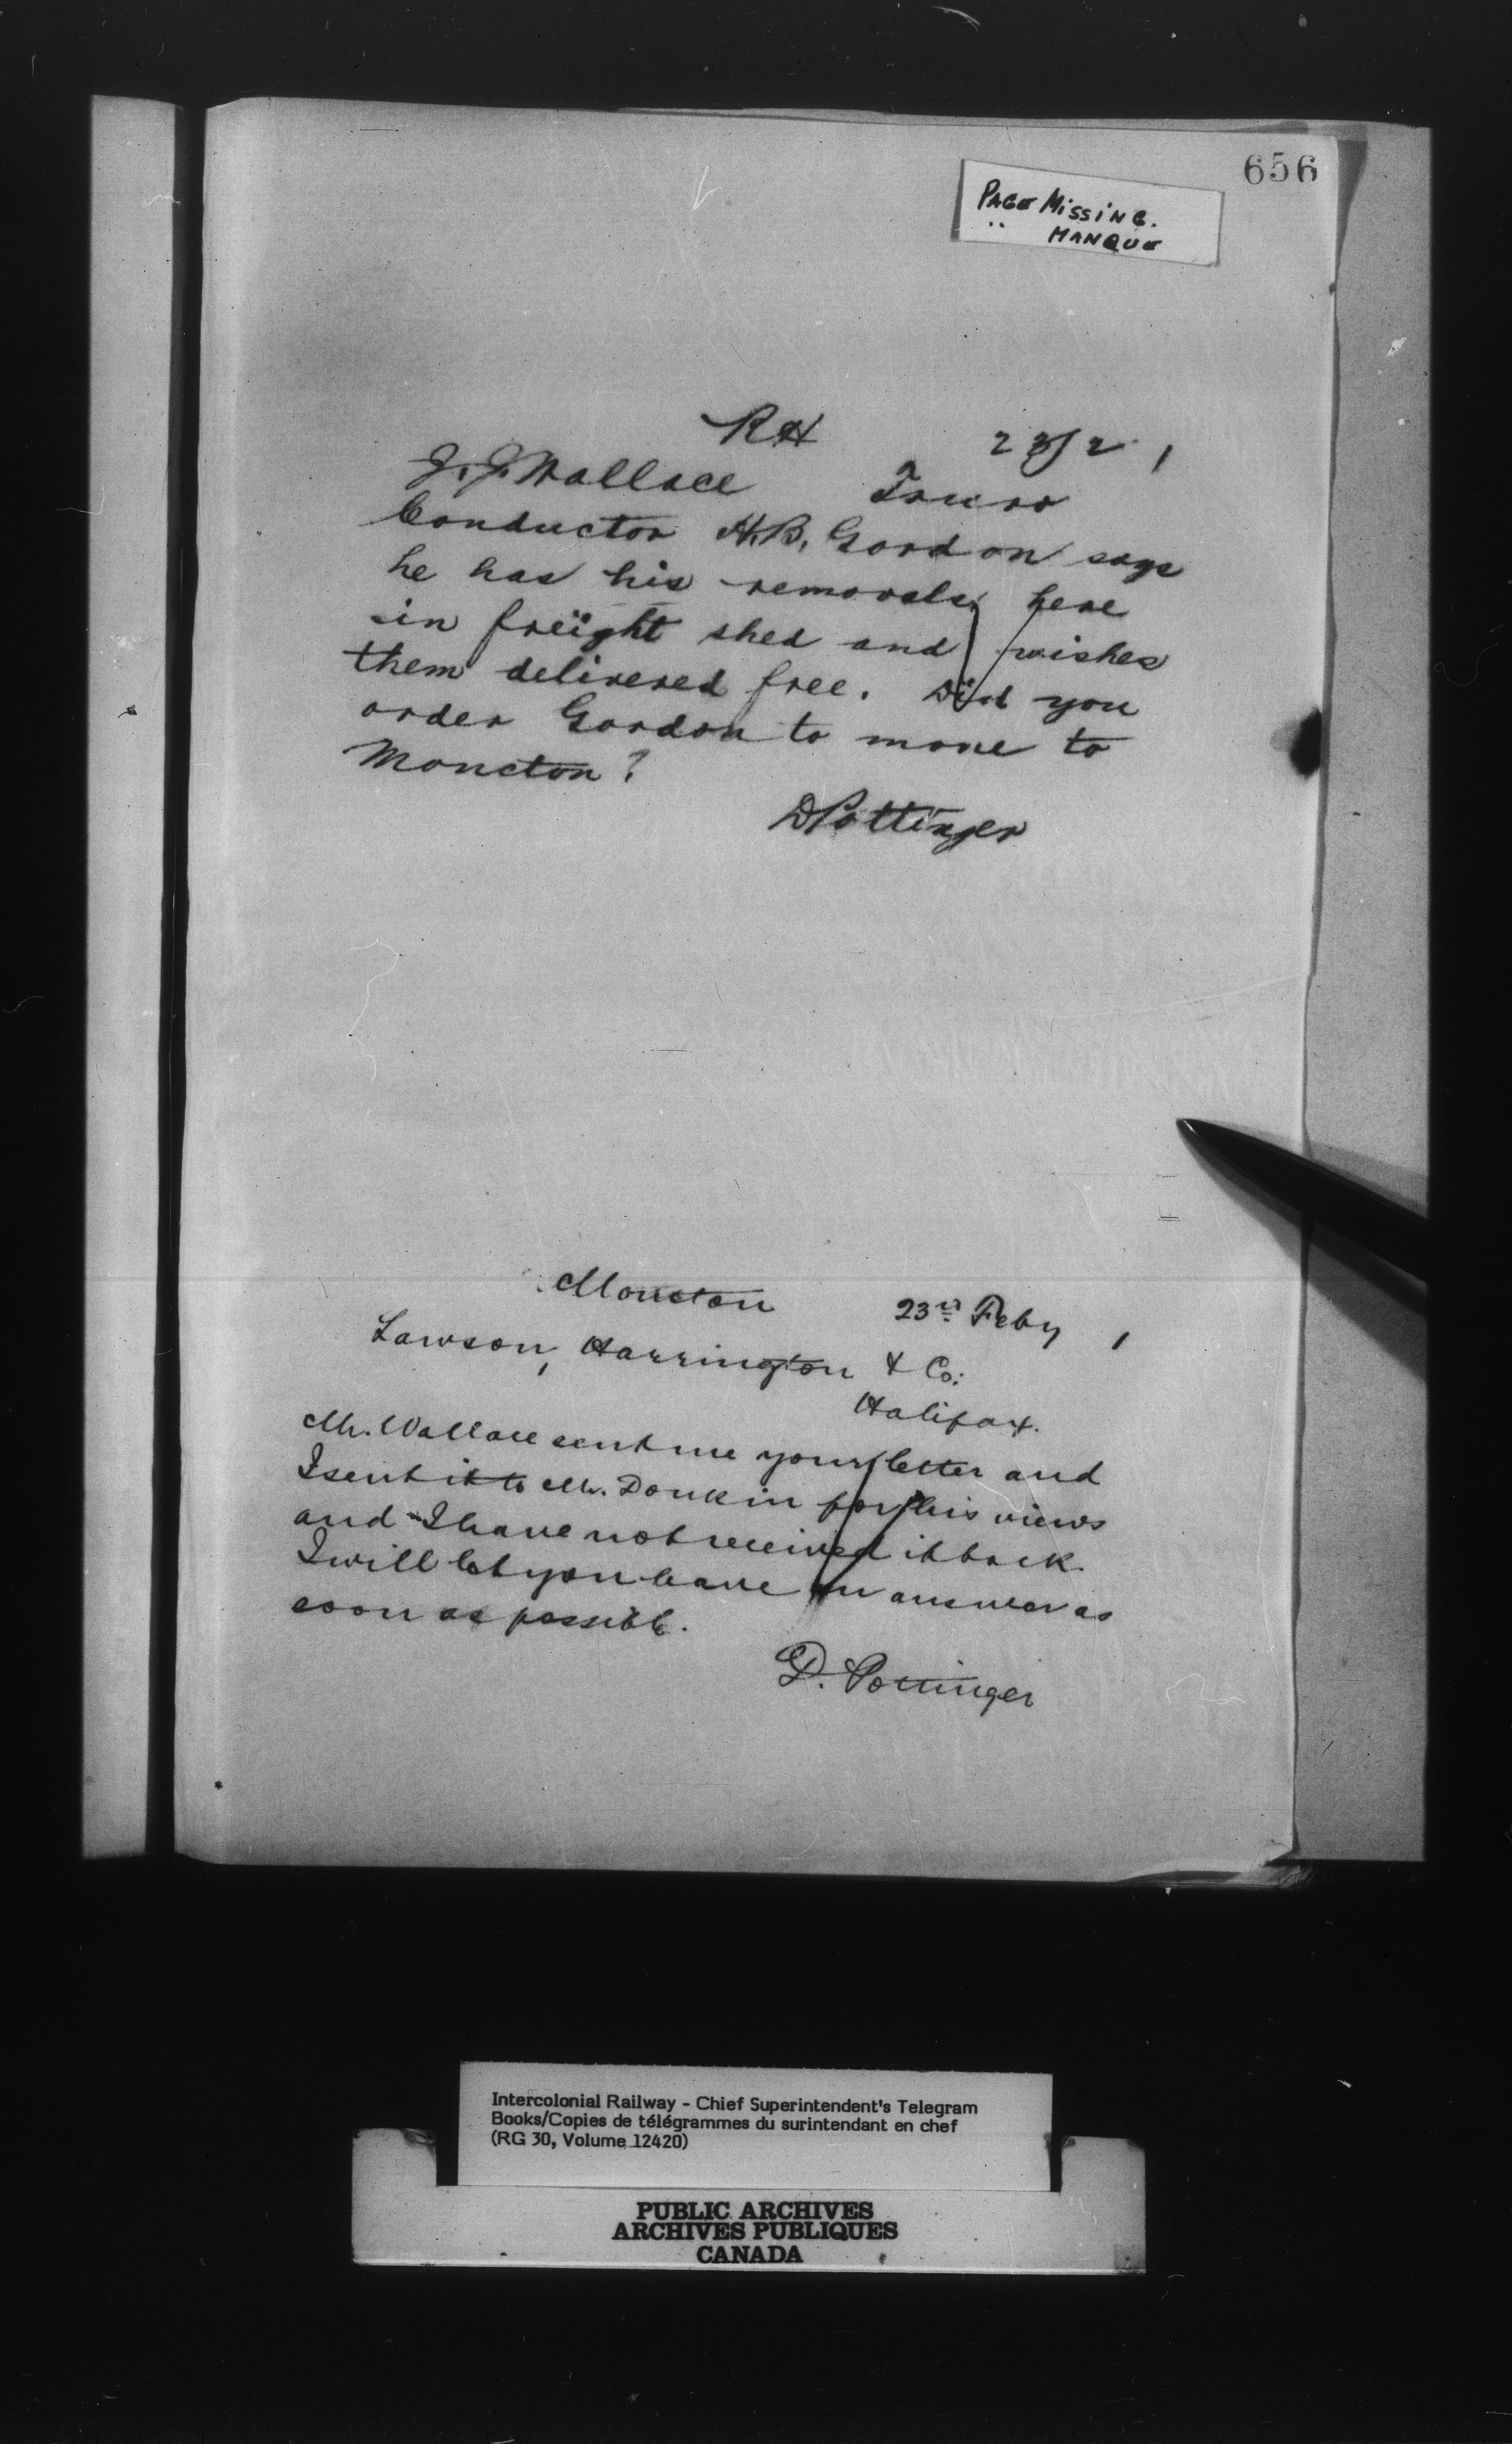 656
PAGE MISSING.
" MANQUE
RH 23/2 1
J. J. Wallace Truro
Conductor H. B. Gordon says
he has his removals here
in freight shed and wishes
them delivered free. Did you
order Gordon to move to
Moncton?
D Pottinger
Moncton 23rd Feby 1
Lawson, Harrington & Co:
Halifax.
Mr. Wallace sent me your letter and
I sent it to Mr. Donkin for his views
and I have not received it back.
I will let you have an answer as
soon as possible.
D. Pottinger
Intercolonial Railway - Chief Superintendent's Telegram
Books/Copies de télégrammes du surintendant en chef
(RG 30, Volume 12420)
PUBLIC ARCHIVES
ARCHIVES PUBLIQUES
CANADA